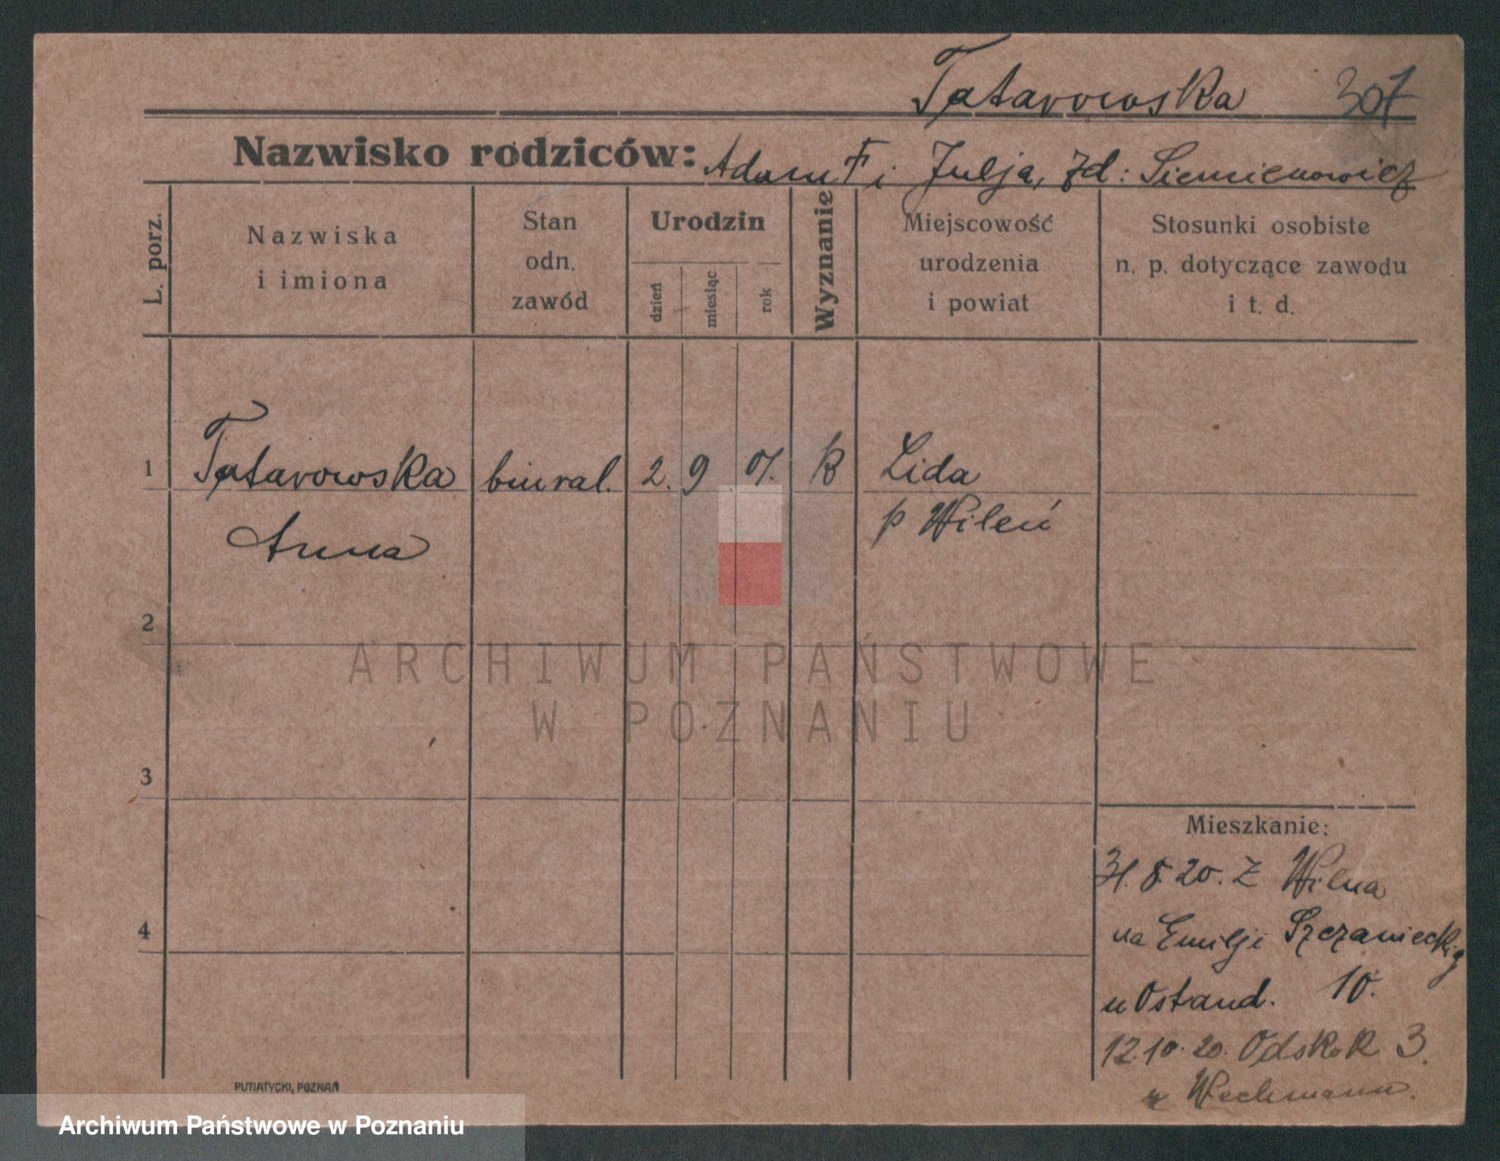 Tatarowska 307
Nazwisko rodziców: Adam F i Julja, zd: Siemienowicz
L. porz.
Nazwiska
i imiona
Stan
odn.
zawód
Urodzin
dzień
miesiąc
rok
Wyznanie
Miejscowość
urodzenia
i powiat
Stosunki osobiste
n. p. dotyczące zawodu
i t. d.
1 Tatarowska biural. 2. 9 07. k Lida
Anna p Wileń
2
ARCHIWUM PAŃSTWOWE
W POZNANIU
3
Mieszkanie:
31.8.20. Z Wilna
4
na Emilji Szczanieckiej
u Ostand. 10.
12.10.20. Odskok 3.
u Weckmann.
PUTIATYCKI, POZNAŃ
Archiwum Państwowe w Poznaniu